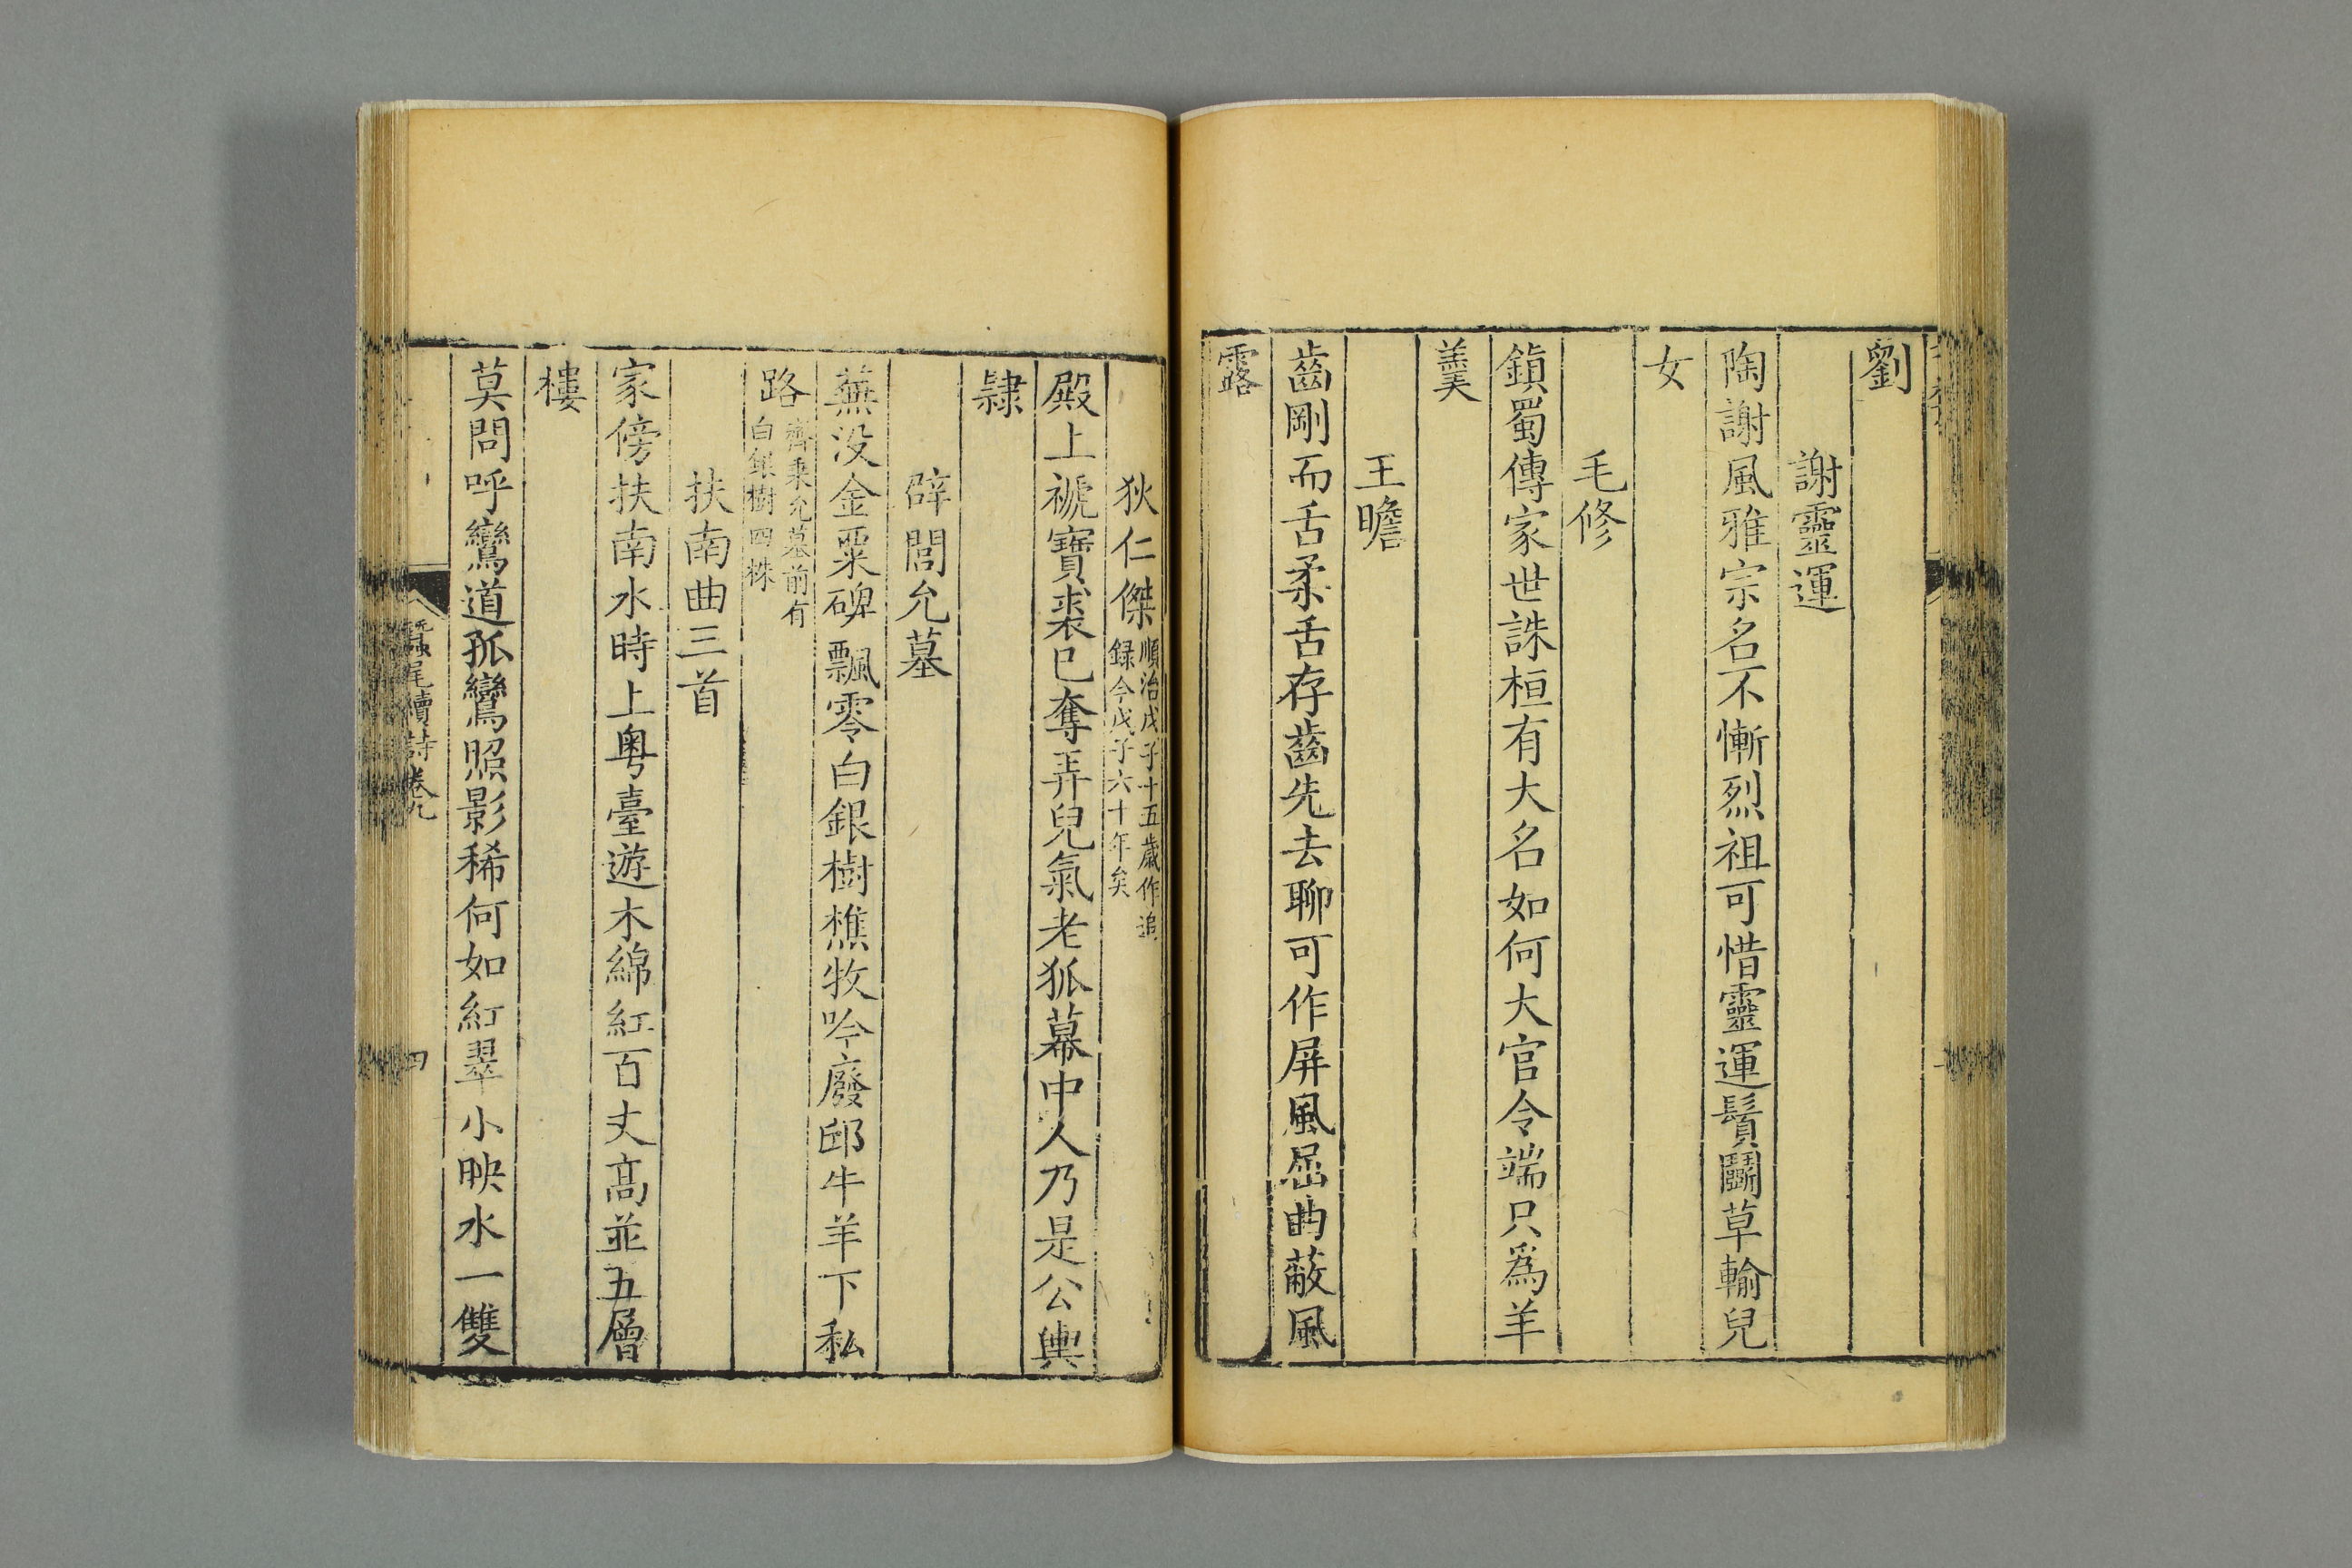 劉
謝靈運
陶謝風雅宗名不慚烈祖可惜靈運鬚鬭草輸兒
女
毛修
鎮蜀傳家世誅桓有大名如何大官令端只爲羊
羹
王瞻
齒剛而舌柔舌存齒先去聊可作屏風屈曲蔽風
露
狄仁傑
順治戊子十五歲作追
録今戊子六十年矣
殿上褫寶裘已奪弄兒氣老狐幕中人乃是公輿
隷
辟閭允墓
蕪没金粟碑飄零白銀樹樵牧吟廢邱牛羊下私
路
齊乘允墓前有
白銀樹四株
扶南曲三首
家傍扶南水時上粤臺遊木綿紅百丈髙並五層
樓
莫問呼鸞道孤鸞照影稀何如紅翠小映水一雙
蠶尾續詩卷九
四